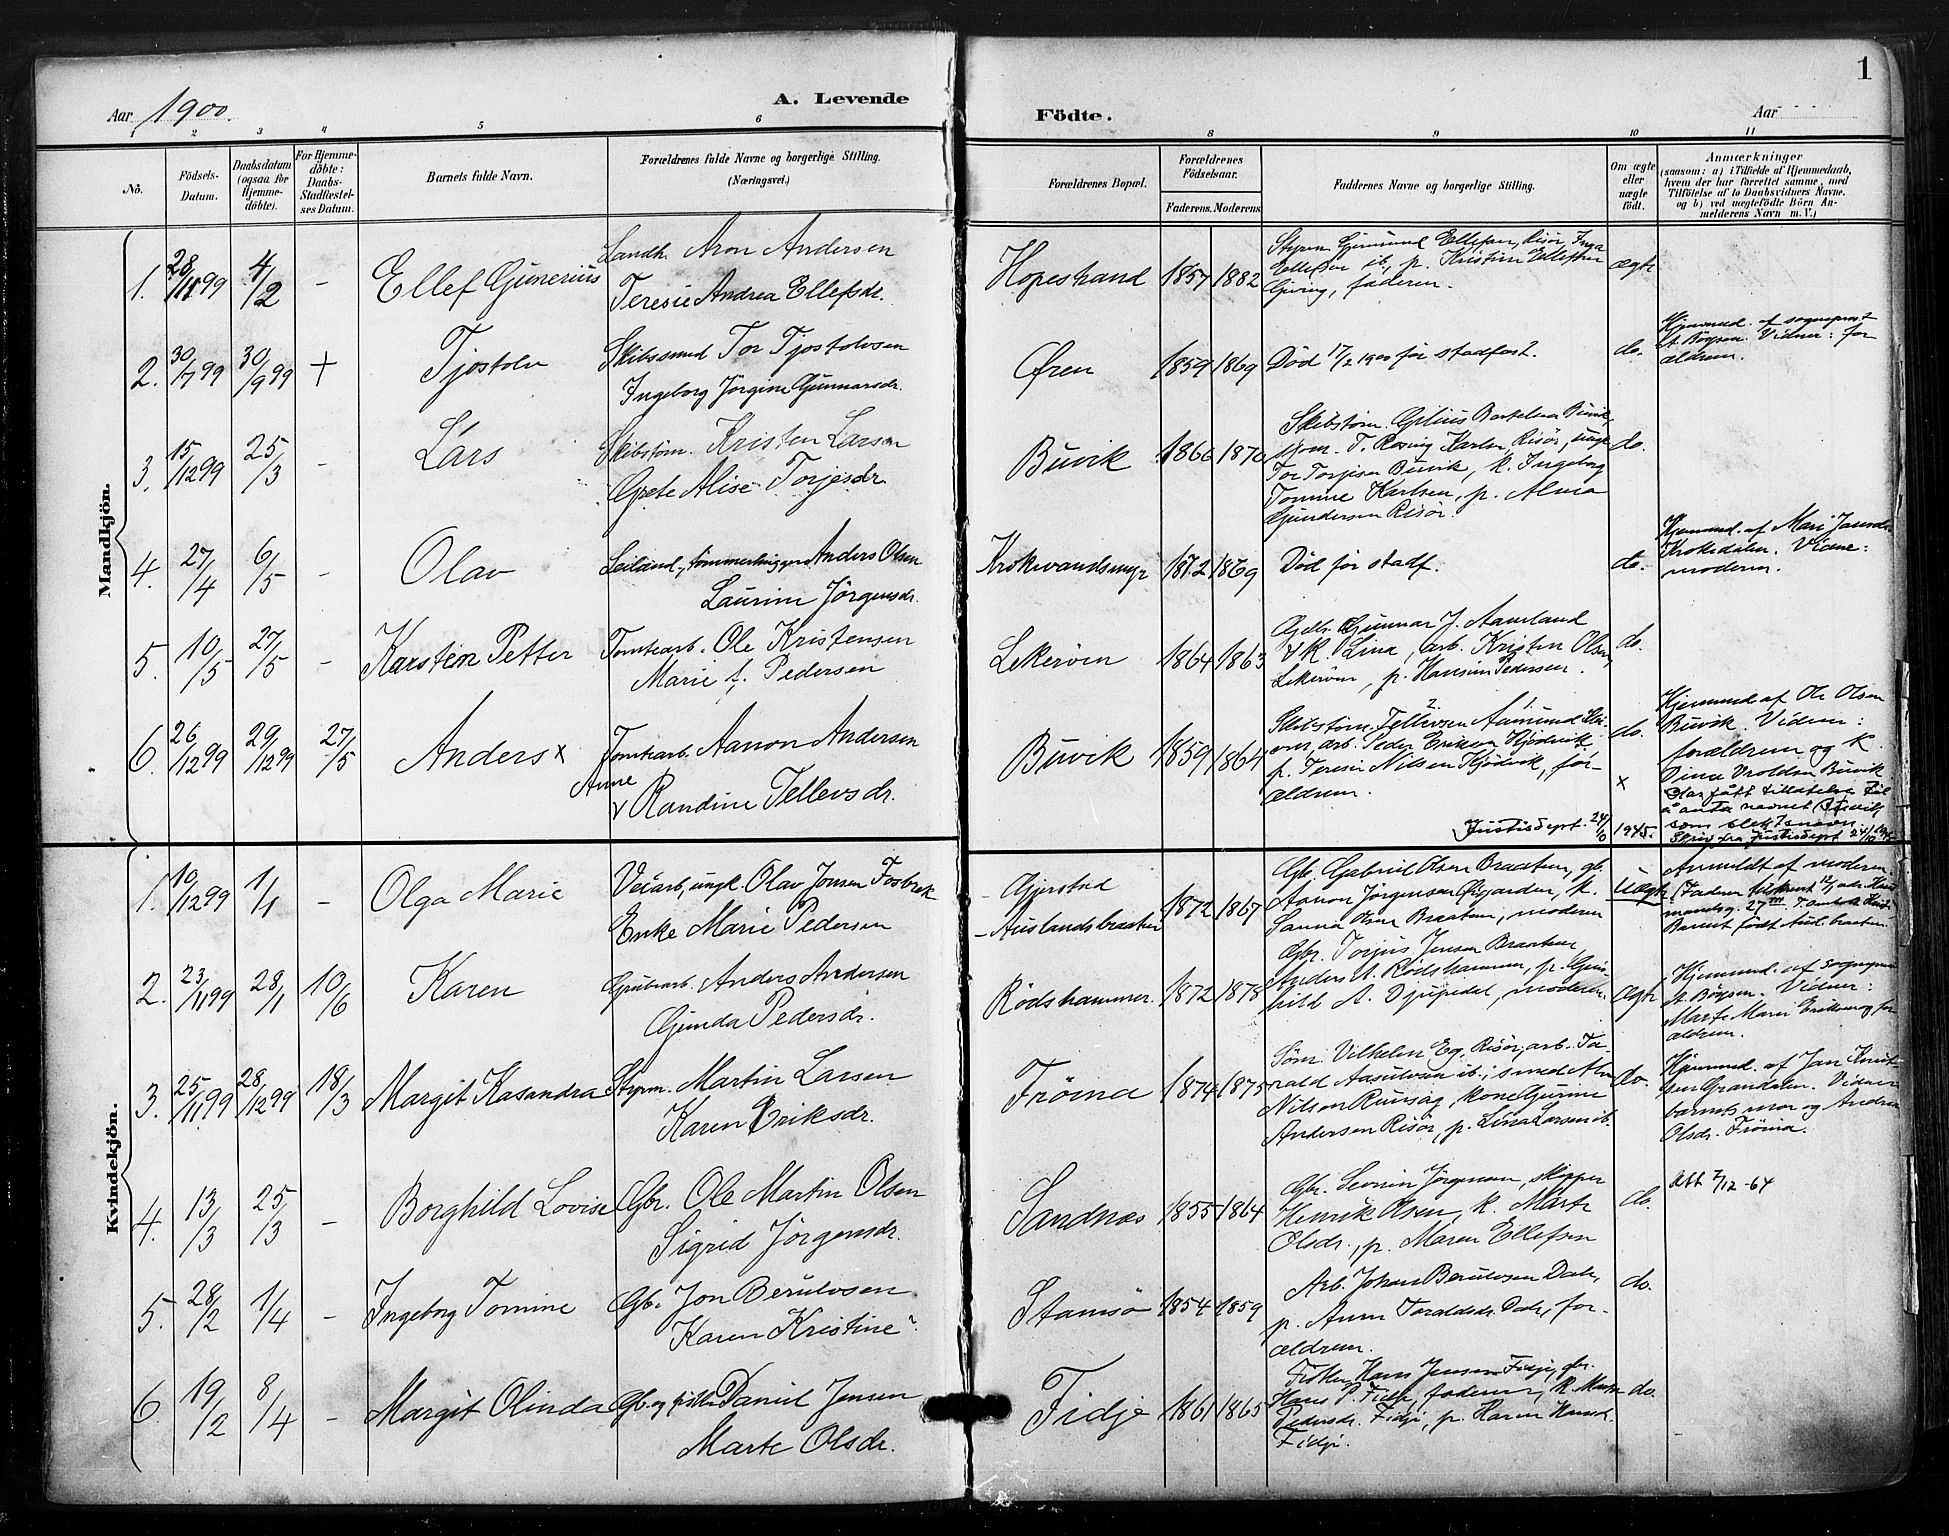 1
Aar 1900. A. Levende Födte. Aar
1 2 3 4 5 6 8 9 10 11
No. Födsels-Datum. Daabsdatum (ogsaa for Hjemme-döbte). For Hjemme-döbte: Daabs-Stadfæstel-ses Datum. Barnets fulde Navn. Forældrenes fulde Navne og borgerlige Stilling. (Næringsvei.) Forældrenes Bopæl. Forældrenes Födselsaar. Faderens. Moderens. Faddernes Navne og borgerlige Stilling. Om ægte eller uægte födt. Anmærkninger (saasom: a) i Tilfælde af Hjemmedaab, hvem der har forrettet samme, med Tilföielse af to Daabsvidners Navne, og b) ved uægtefödte Börn An-melderens Navn m. V.)
Mandkjön.
1. 28/11 99 4/2 - Ellef Gunerius
Landh. Aron Andersen
Teresie Andrea Ellefsdr.
Hopestrand 1857 1882
Styrm. Gunmund Ellefsen, Risör, Inga
Ellefsen ib., p. Kristine Ellefsen
Gjeving, faderen.
ægte
2. 30/7 99 30/9 99 + Tjostolv
Skibssmed Tor Tjostolvsen
Ingeborg Jörgine Gunnarsdr.
Øren 1859 1869
Död 17/2 1900 för stadfæst.
do.
Hjemmed. af sogneprest
A. Bögsen. Vidner: for
ældrene.
3. 15/12 99 25/3 - Lars
Skibstöm. Kristen Larsen
Grete Alise Torjesdr.
Buvik 1866 1870
Skibstöm. Gilius Bertelsen Buvik,
T. Rosing Karlsen, Risör, ungk.
Tor Torjesen Buvik, k. Ingeborg
Tomine Karlsen, p. Alma
Gundersen Risör.
do.
4. 27/4 6/5 - Olav
Leiland., tömmerhugger Anders Olsen
Laurine Jörgensdr.
Krokvandsmyr 1872 1869
Död för stadf.
do.
Hjemmed. af Mari Jansdr.
Krokedalen. Vidne:
moderen.
5. 10/5 27/5 - Karsten Petter
Tomtearb. Ole Kristensen
Marie f. Pedersen
Lekerven 1864 1863
Gjestg. Gunnar J. Aamland
& k. Lina, arb. Kristen Olsen
Lekerven, p. Hansine Pedersen.
do.
6. 26/12 99 29/12 99 27/5 Anders x
Tomtearb. Aanon Andersen
Anne
v Randine Tellevsdr.
Buvik 1859 1864
Skibstöm. Tellevsen Aamund
arb. Peder Eriksen Hjödvik,
p. Teresie Nilsen Hjödvik, for-
ældrene.
do.
x
Hjemmed af Ole Olsen
Buvik. Vidner:
forældrene og k.
Dina Vroldsen Buvik
Har fått tillatelse til
å anta navnet Buvik
som slektsnavn.
Skriv fra Justisdept 24/10 1945.
Justisdept. 24/10 1945.
Kvindekjön.
1. 10/12 99 1/1 - Olga Marie
Veiarb, ungk. Olav Jonsen Fosbrek
Enke Marie Pedersen
- Gjerstad
- Auslandsbraaten
1872 1867
Gbr. Gabriel Olsen Braaten, gb.
Aanon Jörgensen Øigarden, k.
Sanna Olsen Braaten, moderen
Uægte
Anmeldt af moderen
Barnet födt Ausl.braaten.
2. 23/11 99 28/1 10/6 Karen
Grubearb. Anders Andersen
Gunda Pedersdr.
Rödshammer. 1872 1878
Gbr. Torjus Jensen Braaten,
Anders A. Rödshammer, p. Gun-
hild A. Djupedal, moderen.
ægte
Hjemmed. af sognepr.
A. Bögsen. Vidner:
Marte Marie Eriksen og for
ældrene.
3. 25/11 99 28/12 99 18/3 Margit Kasandra
Styrm. Martin Larsen
Karen Eriksdr.
Fröina 1874 1875
Söm. Vilhelm Eg, Risör, arb. Ta-
rald Aasulvsen ib.; smed Alv.
Nilsen Rumsag, kone Gurine
Andersen Risör, p. Lina Larsen ib.
do.
Hjemmed. af Jan Knut-
sen Granderen. Vidner
barnets mor og Andrea
Olsdr. Fröina.
4. 13/3 25/3 - Borghild Lovise
Gbr. Ole Martin Olsen
Sigrid Jörgensdr.
Sandnæs 1855 1864
Gbr. Severin Jörgensen, skipper
Henrik Olsen, k. Marte
Olsdr., p. Maren Ellefsen
do.
Att 7/12 -64
5. 28/2 1/4 - Ingeborg Tomine
Gbr. Jon Berulvsen
Karen Kristine
Stamsö 1854 1859
Arb. Johan Berulvsen Dale,
p. Anne Taraldsdr. Dale, for-
ældrene.
do.
6. 19/2 8/4 - Margit Olinda
Gb. og fisker Daniel Jensen
Marte Olsdr.
Fidje 1861 1865
Fisker Hans Jensen Fidje, gbr.
Hans P. Fidje, faderen, k. Maren
Pedersdr. Fidje, p. Karen Hansdr.
Fidje.
do.